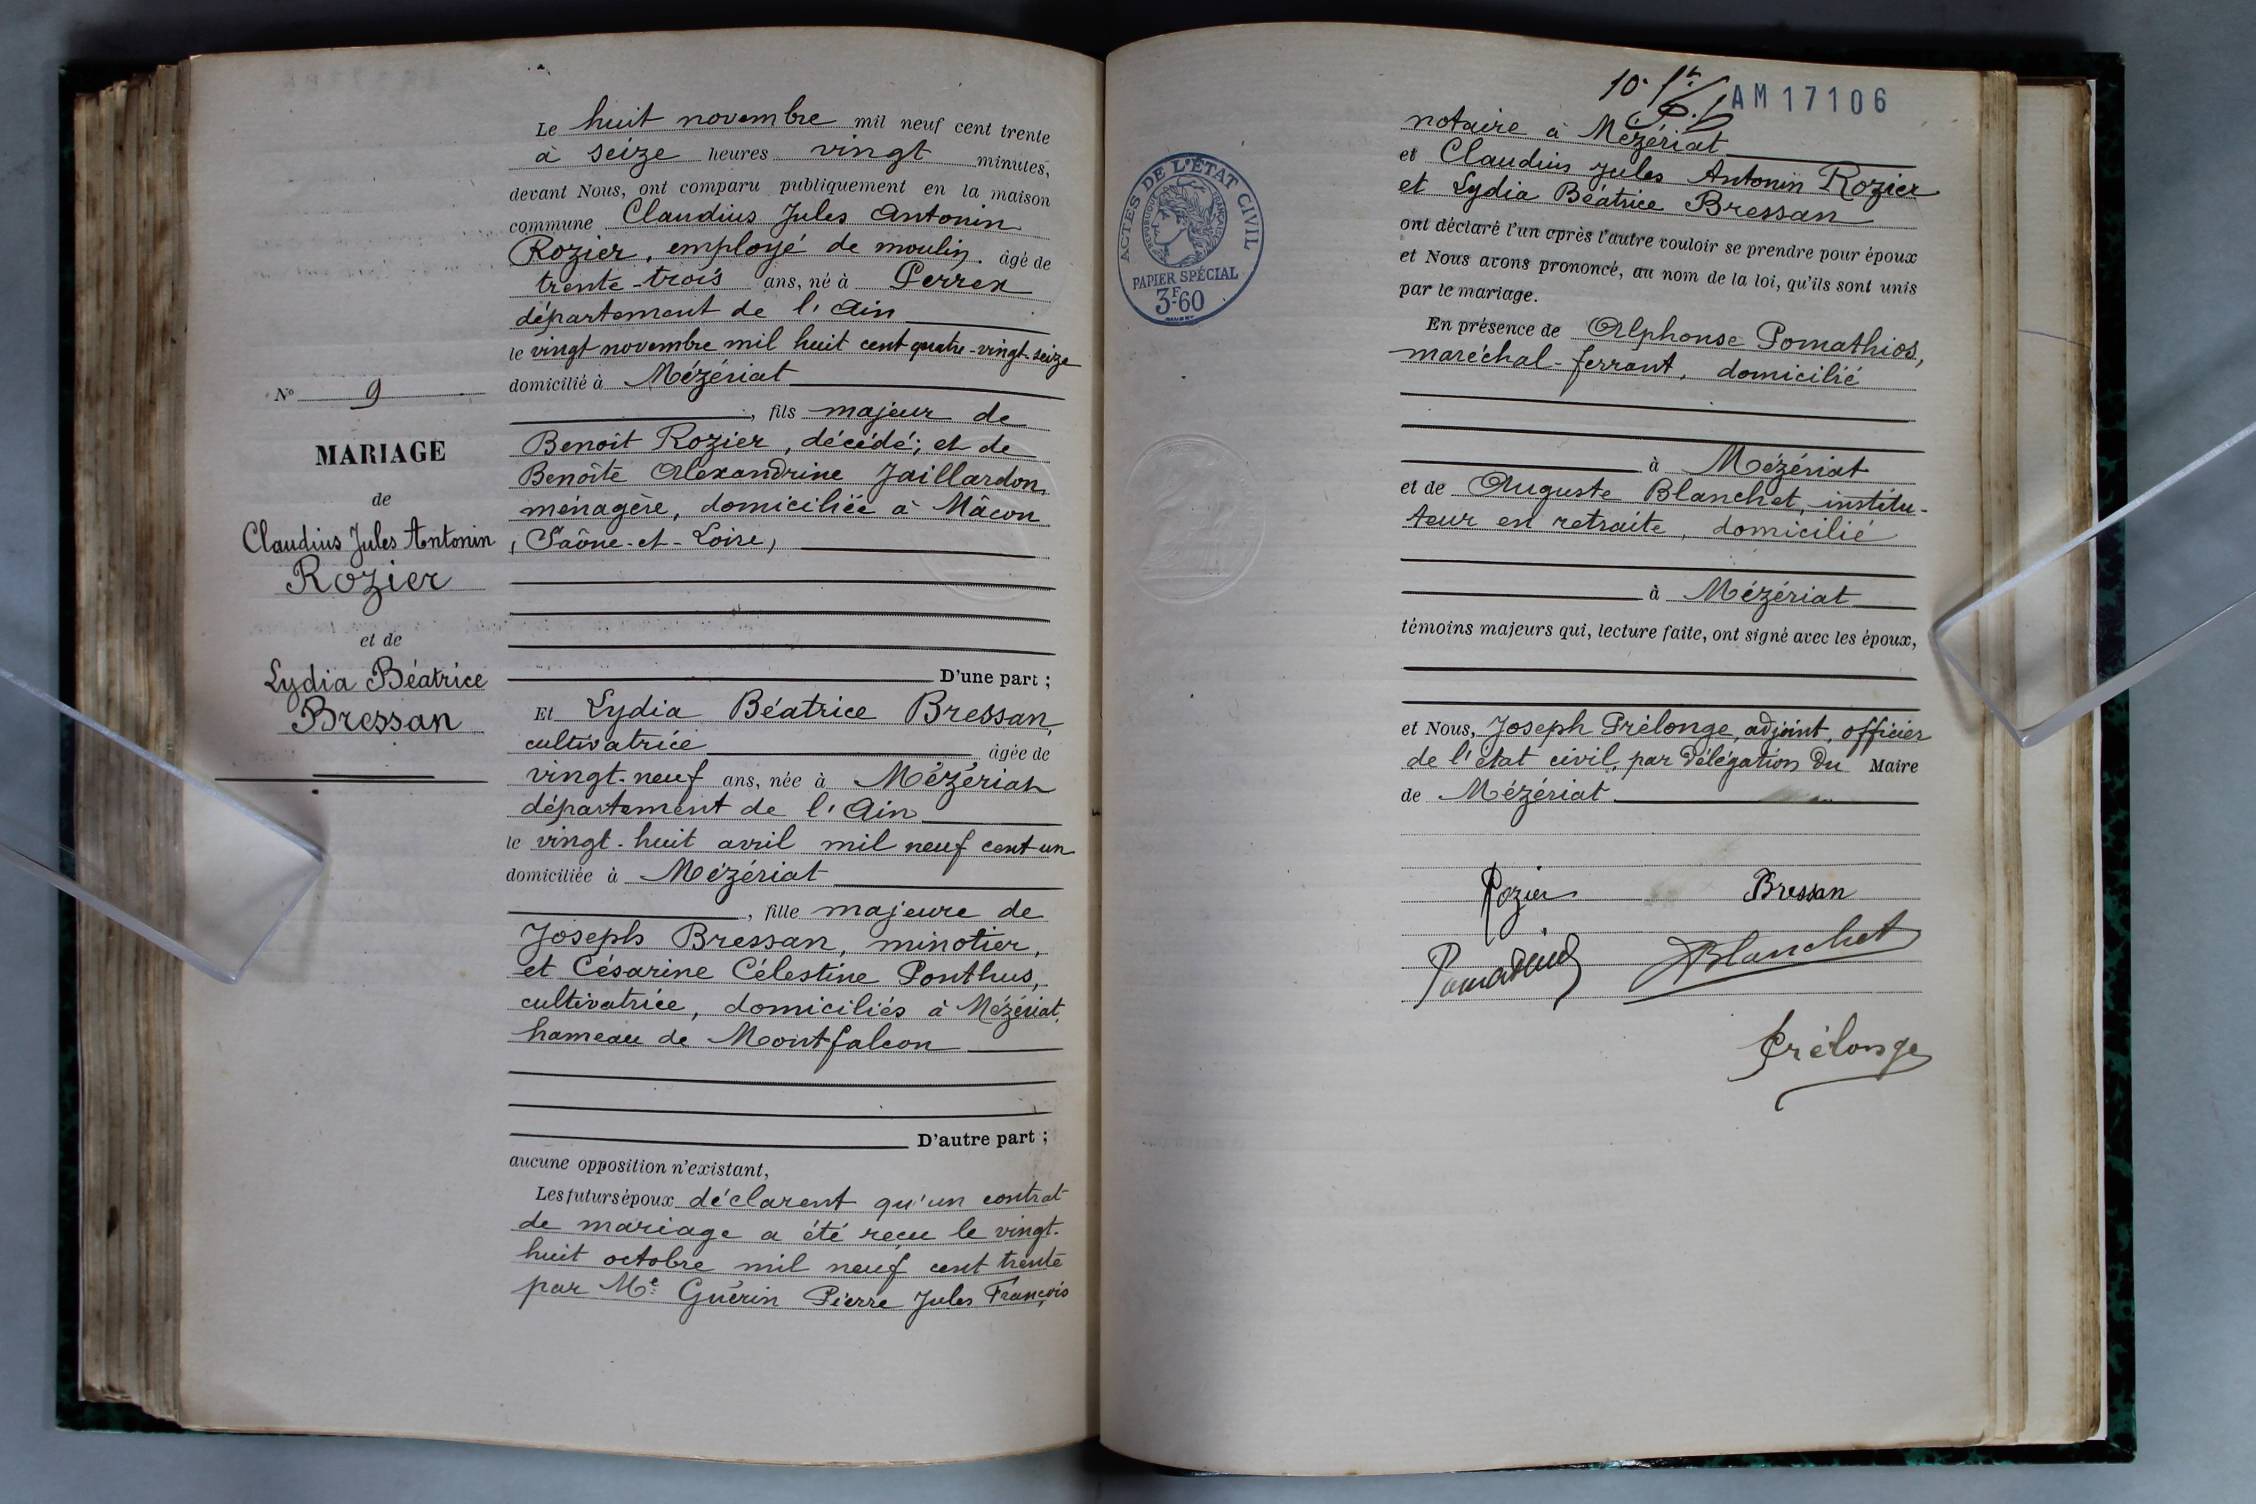 Le huit novembre mil neuf cent trente
à seize heures vingt minutes,
devant Nous, ont comparu publiquement en la maison
commune Claudius Jules Antonin
Rozier, employé de moulin, âgé de
trente-trois ans, né à Perrex
département de l'Ain
le vingt novembre mil huit cent quatre-vingt-seize
domicilié à Mézériat
, fils majeur de
Benoit Rozier, décédé; et de
Benoîte Alexandrine Jaillardon,
ménagère, domiciliée à Mâcon
(Saône-et-Loire)
D'une part ;
N° 9
MARIAGE
de
Claudius Jules Antonin
Rozier
et de
Lydia Béatrice
Bressan
Et Lydia Béatrice Bressan,
cultivatrice âgée de
vingt-neuf ans, née à Mézériat
département de l'Ain
le vingt-huit avril mil neuf cent un
domiciliée à Mézériat
, fille majeure de
Joseph Bressan, minotier,
et Césarine Célestine Ponthus,
cultivatrice, domiciliés à Mézériat,
hameau de Montfalcon
D'autre part ;
aucune opposition n'existant,
Les futurs époux déclarent qu'un contrat
de mariage a été reçu le vingt-
huit octobre mil neuf cent trente
par Me Guérin Pierre Jules François
AM17106
ACTES DE L'ÉTAT CIVIL
RÉPUBLIQUE FRANÇAISE
PAPIER SPÉCIAL
3F60
notaire à Mézériat
et Claudius Jules Antonin Rozier
et Lydia Béatrice Bressan
ont déclaré l'un après l'autre vouloir se prendre pour époux
et Nous avons prononcé, au nom de la loi, qu'ils sont unis
par le mariage.
En présence de Alphonse Pomathios,
maréchal-ferrant, domicilié
à Mézériat
et de Auguste Blanchet, institu-
teur en retraite, domicilié
à Mézériat
témoins majeurs qui, lecture faite, ont signé avec les époux,
et Nous, Joseph Prélonge, adjoint, officier
de l'état civil, par délégation du Maire
de Mézériat
Rozier Bressan
Pomathios ABlanchet
Prélonge